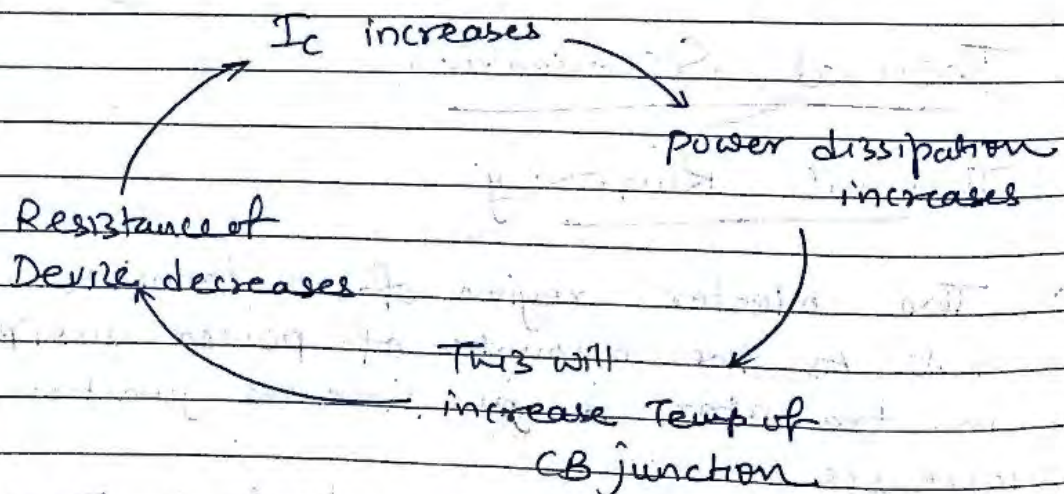 I_C increases
Power dissipation
increases
This will
increase Temp of
CB junction
Resistance of
Device decreases